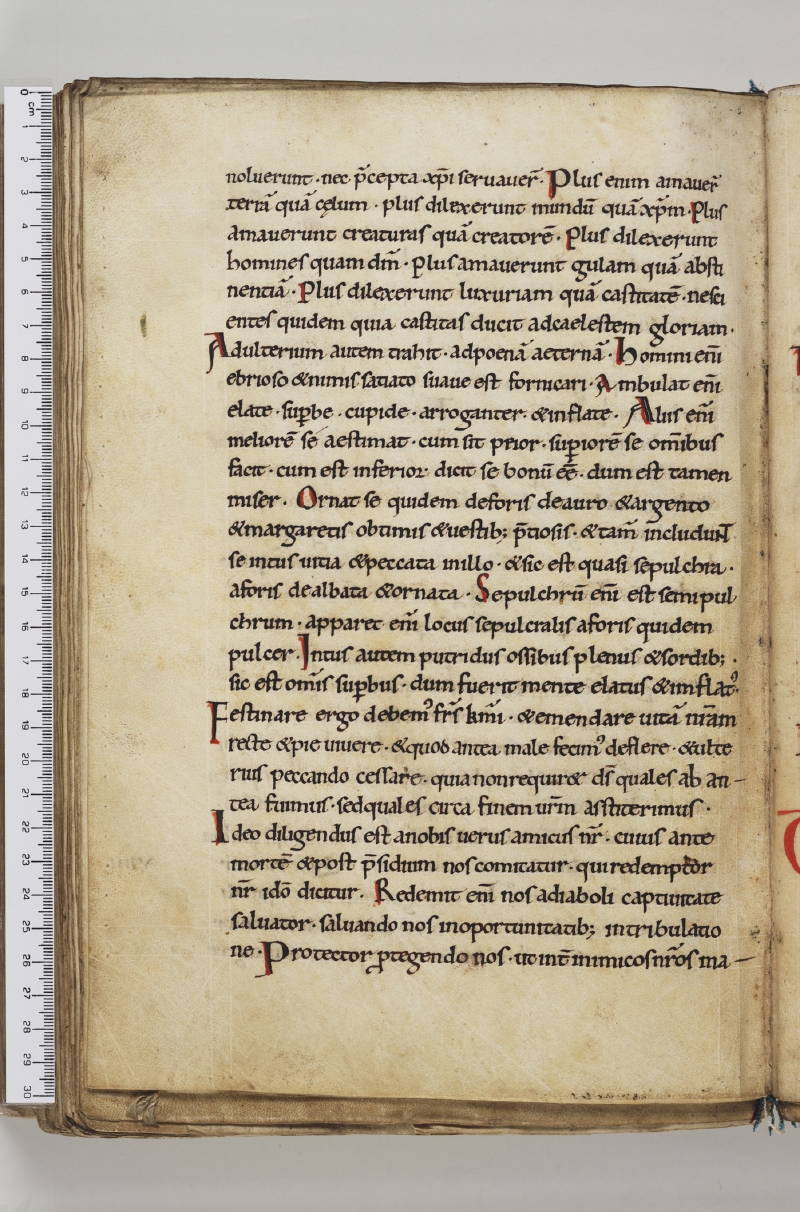 noluerunt · nec p̄cepta xp̄i seruauer̄ · Plus enim amauer̄
terrā quā cęlum · plus dilexerunt mundū quā xp̄m · Plus
amauerunt creaturas quā creatorē · Plus dilexerunt
homines quam dm̄ · Plus amauerunt gulam quā absti
nentiā · Plus dilexerunt luxuriam quā castitatē · nesci
entes quidem quia castitas ducit adcaelestem gloriam ·
Adulterium autem trahit · adpoenā aeternā · Homini eni̅
ebrioso & nimis satiato suaue est fornicari · Ambulat eni̅
elate · sup̱be · cupide · arroganter · & inflate · Aliis eni̅
meliorē se aestimat · cum sit peior · sup̱iorē se om̄ibus
facit · cum est inferior · dicit se bonū ee̅ · dum est tamen
miser · Ornat se quidem deforis de auro & argento
& margaretis obtimis & uestib; p̄tiosis · & tam̄ includunt
se intus uitia & peccata in illo · & sic est quasi sepulchra ·
aforis dealbata & ornata · Sepulchrū eni̅ est semipul
chrum · apparet eni̅ locus sepulcralis aforis quidem
pulcer · Intus autem putridus ossibus plenus & sordib; ·
sic est om̄is sup̱bus · dum fuerit mente elatus & inflatꝰ ·
Festinare ergo debemꝰ fr̄s km̄i · & emendare uitā nr̄am
recte & pie uiuere · & quod antea male fecimꝰ deflere · & ulte
rius peccando cessare · quia non requir& ds̄ quales ab an-
tea fuimus · sed quales circa finem urm̄ asstiterimus ·
Ideo diligendus est anobis uerus amicus nr̄ · cuius ante
mortē & post p̄sidium nos comitatur · qui redemptor
nr̄ ido̅ dicitur · Redemit eni̅ nos adiaboli captiuitate
saluator · saluando nos inoportunitatib; in tribulatio
ne · Protector p̱tegendo nos · ut int̄ inimicos nr̄os ma-
0 cm
1
2
3
4
5
6
7
8
9
10
11
12
13
14
15
16
17
18
19
20
21
22
23
24
25
26
27
28
29
30